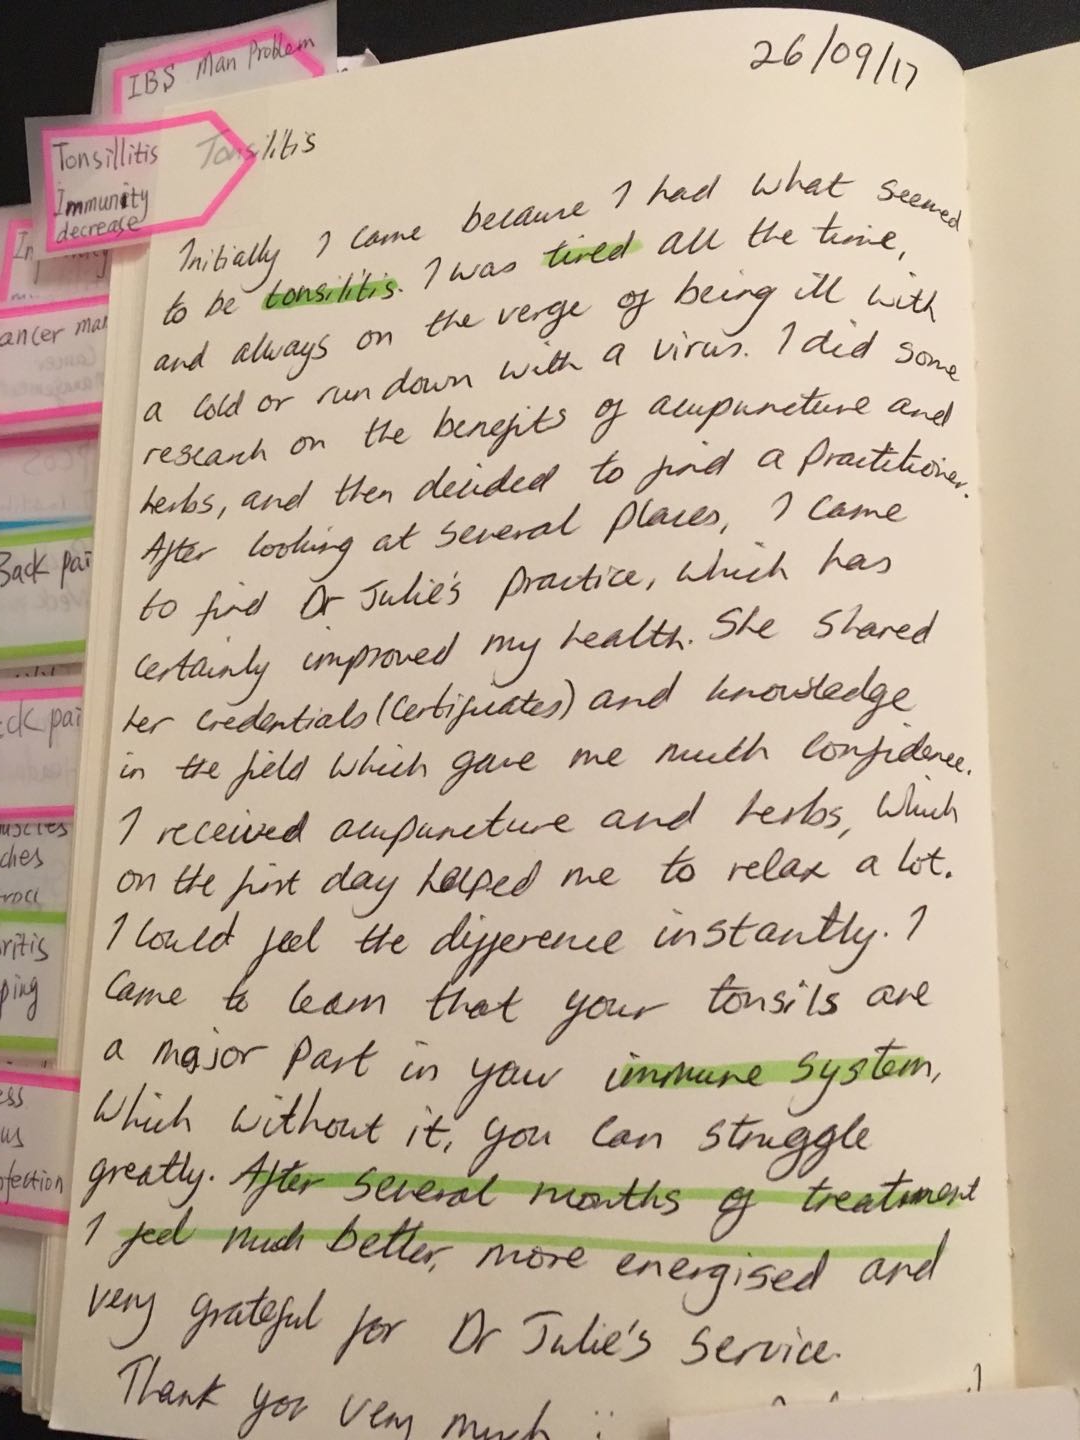 26/09/17
IBS Man Problem
Tonsillitis
Immunity
decrease
Tonsilitis
Initially I came because I had what seemed
to be tonsilitis. I was tired all the time,
and always on the verge of being ill with
a cold or run down with a virus. I did some
research on the benefits of acupuncture and
herbs, and then decided to find a Practitioner.
After looking at several places, I came
to find Dr Julie's practice, which has
certainly improved my health. She shared
her credentials (Certificates) and knowledge
in the field which gave me much confidence.
I received acupuncture and herbs, which
on the first day helped me to relax a lot.
I could feel the difference instantly. I
came to learn that your tonsils are
a major part in your immune system,
which without it, you can struggle
greatly. After several months of treatment
I feel much better, more energised and
very grateful for Dr Julie's service.
Thank you very much :
In
ancer man
Back pai
ck pai
uscles
ches
roci
ritis
ping
ess
us
nfection